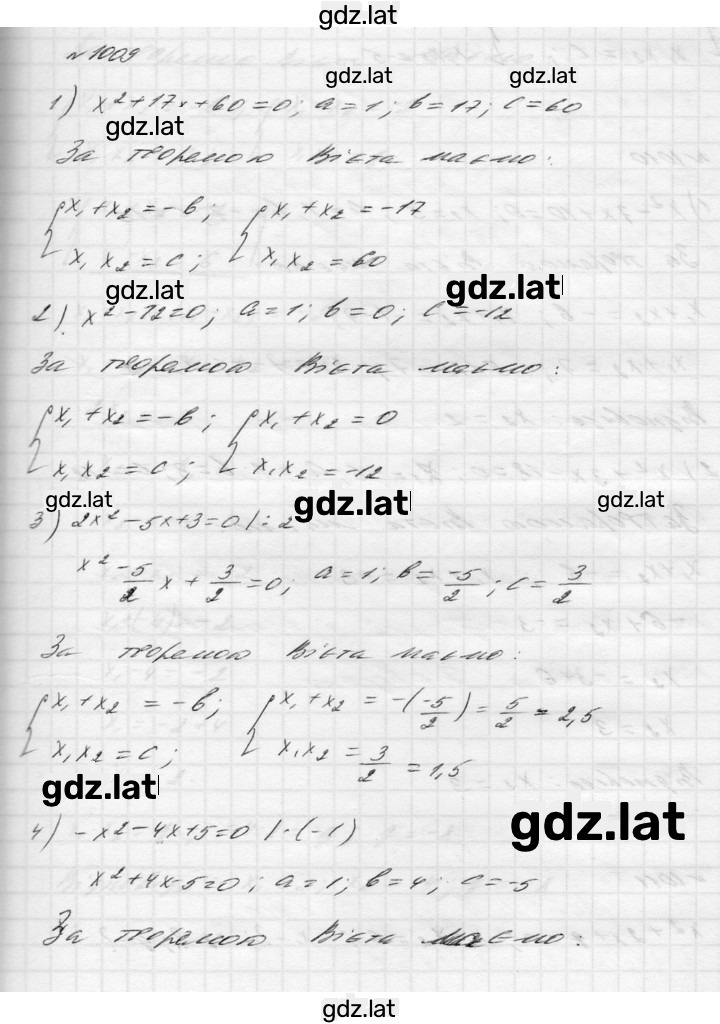 gdz.lat
№ 1009
gdz.lat gdz.lat
1) x²+17x+60=0; a=1; b=17; c=60
gdz.lat
За теоремою Вієта маємо:
{x₁+x₂=-b; {x₁+x₂=-17
x₁x₂=c; x₁x₂=60
gdz.lat gdz.lat
2) x²-12=0; a=1; b=0; c=-12
За теоремою Вієта маємо:
{x₁+x₂=-b; {x₁+x₂=0
x₁x₂=c; x₁x₂=-12
gdz.lat gdz.lat gdz.lat
3) 2x²-5x+3=0 |:2
x² -5/2 x + 3/2 =0; a=1; b= -5/2; c= 3/2
За теоремою Вієта маємо:
{x₁+x₂ = -b; {x₁+x₂ = -(-5/2) = 5/2 = 2,5
x₁x₂=c; x₁x₂ = 3/2 = 1,5
gdz.lat gdz.lat
4) -x²-4x+5=0 |·(-1)
x²+4x-5=0; a=1; b=4; c=-5
За теоремою Вієта маємо:
gdz.lat